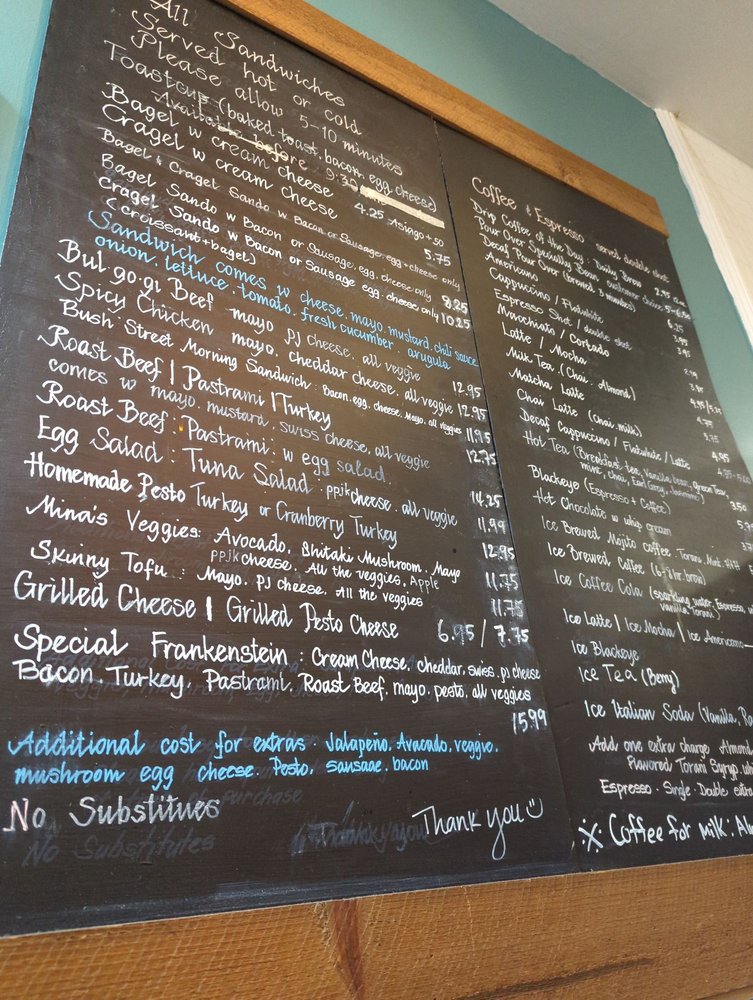 All Sandwiches
Served hot or cold
Please allow 5-10 minutes
Toastcup (baked toast, bacon, egg, cheese)
Available before 9:30
Bagel w cream cheese
Cragel w cream cheese 4.25 Asiago + 50
Bagel & Cragel Sando w Bacon or Sausage, egg + cheese only 5.75
Bagel Sando w Bacon or Sausage, egg, cheese only 8.25
Cragel Sando w Bacon or Sausage egg cheese only 10.25
(croissant + bagel)
Sandwich comes w cheese, mayo, mustard, chili sauce
onion, lettuce, tomato, fresh cucumber, arugula
Bul.go.gi Beef mayo PJ cheese, all veggie 12.95
Spicy Chicken mayo, cheddar cheese, all veggie 12.95
Bush Street Morning Sandwich: Bacon, egg, cheese, Mayo, all veggies 11.95
Roast Beef | Pastrami | Turkey 12.75
comes w mayo, mustard, swiss cheese, all veggie
Roast Beef: Pastrami: w egg salad 14.25
Egg Salad: Tuna Salad: ppjkcheese, all veggie 11.99
Homemade Pesto Turkey or Cranberry Turkey 12.95
Mina's Veggies: Avocado, Shitaki Mushroom, Mayo 11.75
ppjkcheese, All the veggies, Apple
Skinny Tofu: Mayo, PJ cheese, All the veggies 11.75
Grilled Cheese | Grilled Pesto Cheese 6.95 / 7.75
Special Frankenstein: Cream Cheese, cheddar, swiss, pj cheese
Bacon, Turkey, Pastrami, Roast Beef, mayo, pesto, all veggies
15.99
Additional cost for extras. Jalapeño, Avacado, veggie,
mushroom egg cheese, Pesto, sausage, bacon
No Substitues
No Substitutes
Thank you
Coffee & Espresso served double shot
Drip Coffee of the Day: Daily Brew 2.95
Pour Over Specialty Bean customer choice
Decaf Pour Over (brewed 3 minutes) 6.25
Americano 3.95
Cappuccino / Flatwhite
Espresso Shot / double shot
Macchiato / Cortado
Latte / Mocha
Milk Tea (Chai, Almond)
Matcha Latte
Chai Latte (Chai, milk)
Decaf Cappuccino / Flatwhite / Latte 4.95
Hot Tea (Breakfast tea, Vanilla bean, green Tea,
mint, chai, Earl Grey, Jasmine) 3.50
Blackeye (Espresso + Coffee)
Hot Chocolate w whip cream
Ice Brewed Mojito Coffee Torani Mint
Ice Brewed Coffee (6-7 hr. brew)
Ice Coffee Cola (sparkling water, Espresso,
vanilla Torani)
Ice Latte | Ice Mocha | Ice Americano
Ice Blackeye
Ice Tea (Berry)
Ice Italian Soda (Vanilla,
Add one extra charge Almond
Flavored Torani Syrup,
Espresso - Single - Double extra
Coffee for Milk: